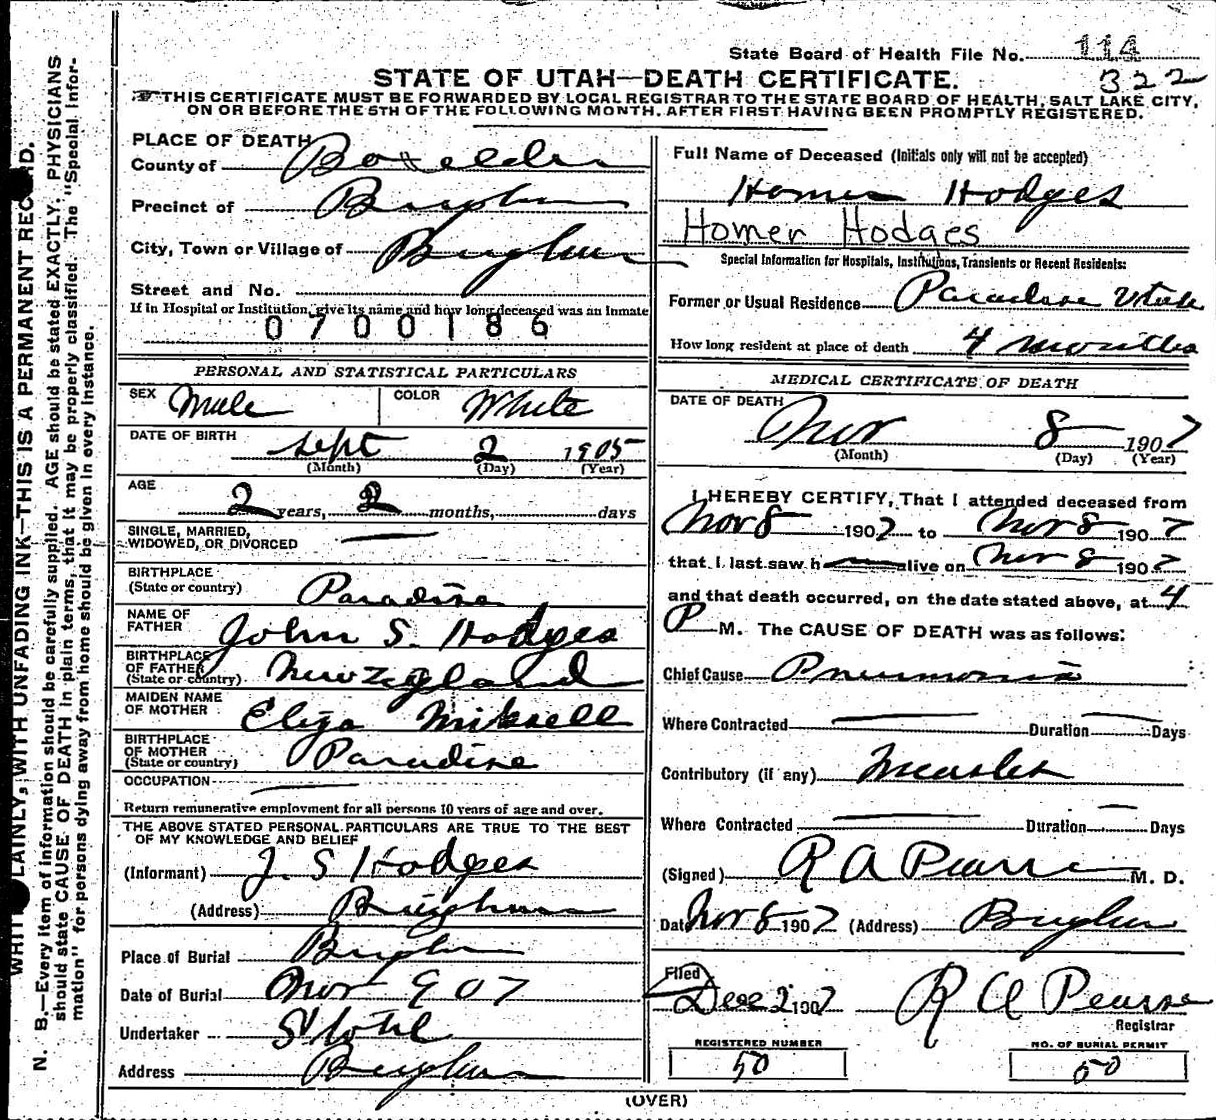 State Board of Health File No. 114
322
STATE OF UTAH—DEATH CERTIFICATE.
THIS CERTIFICATE MUST BE FORWARDED BY LOCAL REGISTRAR TO THE STATE BOARD OF HEALTH, SALT LAKE CITY,
ON OR BEFORE THE 5TH OF THE FOLLOWING MONTH, AFTER FIRST HAVING BEEN PROMPTLY REGISTERED.
PLACE OF DEATH
County of Boxelder
Precinct of Brigham
City, Town or Village of Brigham
Street and No.
If in Hospital or Institution, give its name and how long deceased was an Inmate
0700186
PERSONAL AND STATISTICAL PARTICULARS
SEX Male COLOR White
DATE OF BIRTH Sept 2 1905
(Month) (Day) (Year)
AGE
2 years, 2 months, days
SINGLE, MARRIED,
WIDOWED, OR DIVORCED
BIRTHPLACE
(State or country) Paradise
NAME OF
FATHER John S. Hodges
BIRTHPLACE
OF FATHER
(State or country) New Zealand
MAIDEN NAME
OF MOTHER Eliza
BIRTHPLACE
OF MOTHER
(State or country) Paradise
OCCUPATION
Return remunerative employment for all persons 10 years of age and over.
THE ABOVE STATED PERSONAL PARTICULARS ARE TRUE TO THE BEST
OF MY KNOWLEDGE AND BELIEF
(Informant) J. S Hodges
(Address) Brigham
Place of Burial Brigham
Date of Burial Nov 9 07
Undertaker
Address Brigham
Full Name of Deceased (Initials only will not be accepted)
Homer Hodges
Homer Hodges
Special Information for Hospitals, Institutions, Transients or Recent Residents:
Former or Usual Residence Paradise Utah
How long resident at place of death 4 months
MEDICAL CERTIFICATE OF DEATH
DATE OF DEATH
Nov 8 1907
(Month) (Day) (Year)
I HEREBY CERTIFY, That I attended deceased from
Nov 8 1907 to Nov 8 1907
that I last saw h alive on Nov 8 1907
and that death occurred, on the date stated above, at 4
P M. The CAUSE OF DEATH was as follows:
Chief Cause Pneumonia
Where Contracted Duration Days
Contributory (if any) Measles
Where Contracted Duration Days
(Signed) R A Pearse M. D.
Date Nov 8 1907 (Address) Brigham
Filed
Dec 2 1907 R A Pearse
Registrar
REGISTERED NUMBER
50
NO. OF BURIAL PERMIT
50
(OVER)
WRITE PLAINLY, WITH UNFADING INK—THIS IS A PERMANENT RECORD.
N. B.—Every item of information should be carefully supplied. AGE should be stated EXACTLY. PHYSICIANS
should state CAUSE OF DEATH in plain terms, that it may be properly classified. The "Special Infor-
mation" for persons dying away from home should be given in every instance.